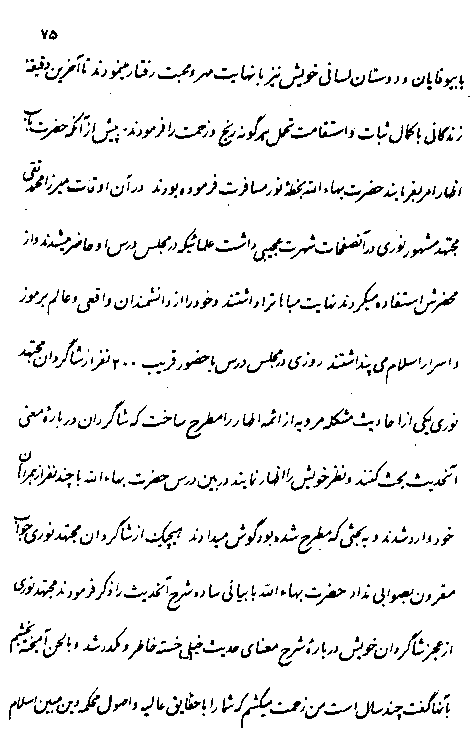 ۷۵
با بیوفایان و دوستان لسانی خویش نیز با نهایت مهر و محبت رفتار مینمودند تا آخرین دقیقهٔ
زندگانی با کمال ثبات و استقامت تحمل هر گونه رنج و زحمت را فرمودند. پیش از آنکه حضرت باب
اظهار امر بفرمایند حضرت بهاءالله بخطهٔ نور مسافرت فرموده بودند در آن اوقات میرزا محمد تقی
مجتهد مشهور نوری در آنصفحات شهرت عجیبی داشت علمائیکه در مجلس درس او حاضر میشدند و از
محضرش استفاده میکردند نهایت مباهات را داشتند و خود را از دانشمندان واقعی و عالم برموز
و اسرار اسلام می پنداشتند روزی در مجلس درس با حضور قریب ۲۰۰ نفر از شاگردان مجتهد
نوری یکی از احادیث مشکله مرویه از ائمه اطهار را مطرح ساخت که شاگردان در بارهٔ معنی
آنحدیث بحث کنند و نظر خویش را اظهار نمایند در بین درس حضرت بهاءالله با چند نفر از همراهان
خود وارد شدند و به بحثی که مطرح شده بود گوش میدادند هیچیک از شاگردان مجتهد نوری جواب
مقرون بصوابی نداد حضرت بهاءالله با بیانی ساده شرح آنحدیث را ذکر فرمودند مجتهد نوری
از عجز شاگردان خویش در بارهٔ شرح معنای حدیث خیلی خسته خاطر و مکدر شد و با لحن آمیخته بخشم
بآنها گفت چند سال است من زحمت میکشم که شما را با حقایق عالیه و اصول محکمه دین مبین اسلام